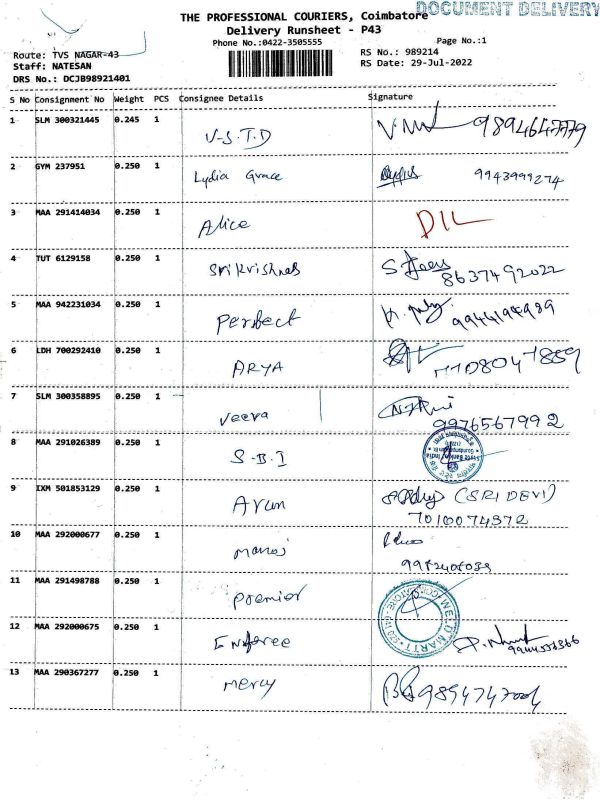 DOCUMENT DELIVERY
THE PROFESSIONAL COURIERS, Coimbatore
Delivery Runsheet - P43
Phone No.:0422-3505555
Page No.:1
Route: TVS NAGAR-43
RS No.: 989214
Staff: NATESAN
RS Date: 29-Jul-2022
DRS No.: DCJB98921401
S No Consignment No Weight PCS Consignee Details Signature
1 SLM 300321445 0.245 1 V.S.T.D
2 GYM 237951 0.250 1 Lydia Grace 9943999274
3 MAA 291414034 0.250 1 Alice DIL
4 TUT 6129158 0.250 1 Srikrishnas 8637492022
5 MAA 942231034 0.250 1 Perfect
6 LDH 700292410 0.250 1 ARYA
7 SLM 300358895 0.250 1 Veera 9976567992
8 MAA 291026389 0.250 1 S.B.I
9 IXM 501853129 0.250 1 Arun (SRI DEVI)
7010074372
10 MAA 292000677 0.250 1 Manoj
11 MAA 291498788 0.250 1 Premier
12 MAA 292000675 0.250 1
13 MAA 290367277 0.250 1 Mercy